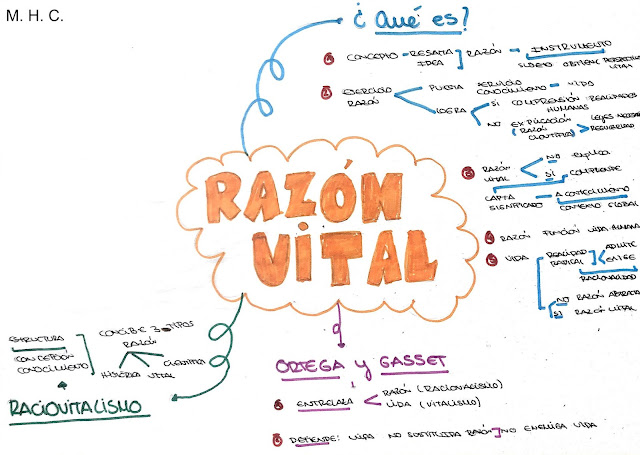 M. H. C.
¿Qué es?
CONCEPTO = RESATA IDEA RAZÓN → INSTRUMENTO
SUJETO OBTIENE PERSPECTIVA VITAL
EJERCICIO RAZÓN
PUESTA EJERCICIO CONOCIMIENTO VIDA
LOGRA
SI COMPRENSIÓN REALIDADES HUMANAS
NO EXPLICACIÓN (RAZÓN CIENTÍFICA)
LEYES
REGULARIDAD
RAZÓN VITAL
NO EXPLICA
SI COMPRENDE
CAPTA SIGNIFICADO
ACONTECIMIENTO
CONTEXTO GLOBAL
RAZÓN FUNCIÓN VIDA HUMANA
VIDA
REALIDAD RADICAL
ADMITE
EXIGE
RACIONALIDAD
NO RAZÓN ABSTRACTA
SI RAZÓN VITAL
RAZÓN VITAL
ESTRUCTURA
CONCEPCIÓN CONOCIMIENTO
CONCIBE 3 TIPOS RAZÓN
HISTÓRICA VITAL CIENTÍFICA
RACIOVITALISMO
ORTEGA y GASSET
ENTRELAZA
RAZÓN (RACIONALISMO)
VIDA (VITALISMO)
DEFIENDE: VIDA NO SUSTITUIDA RAZÓN NO ENEMIGA VIDA